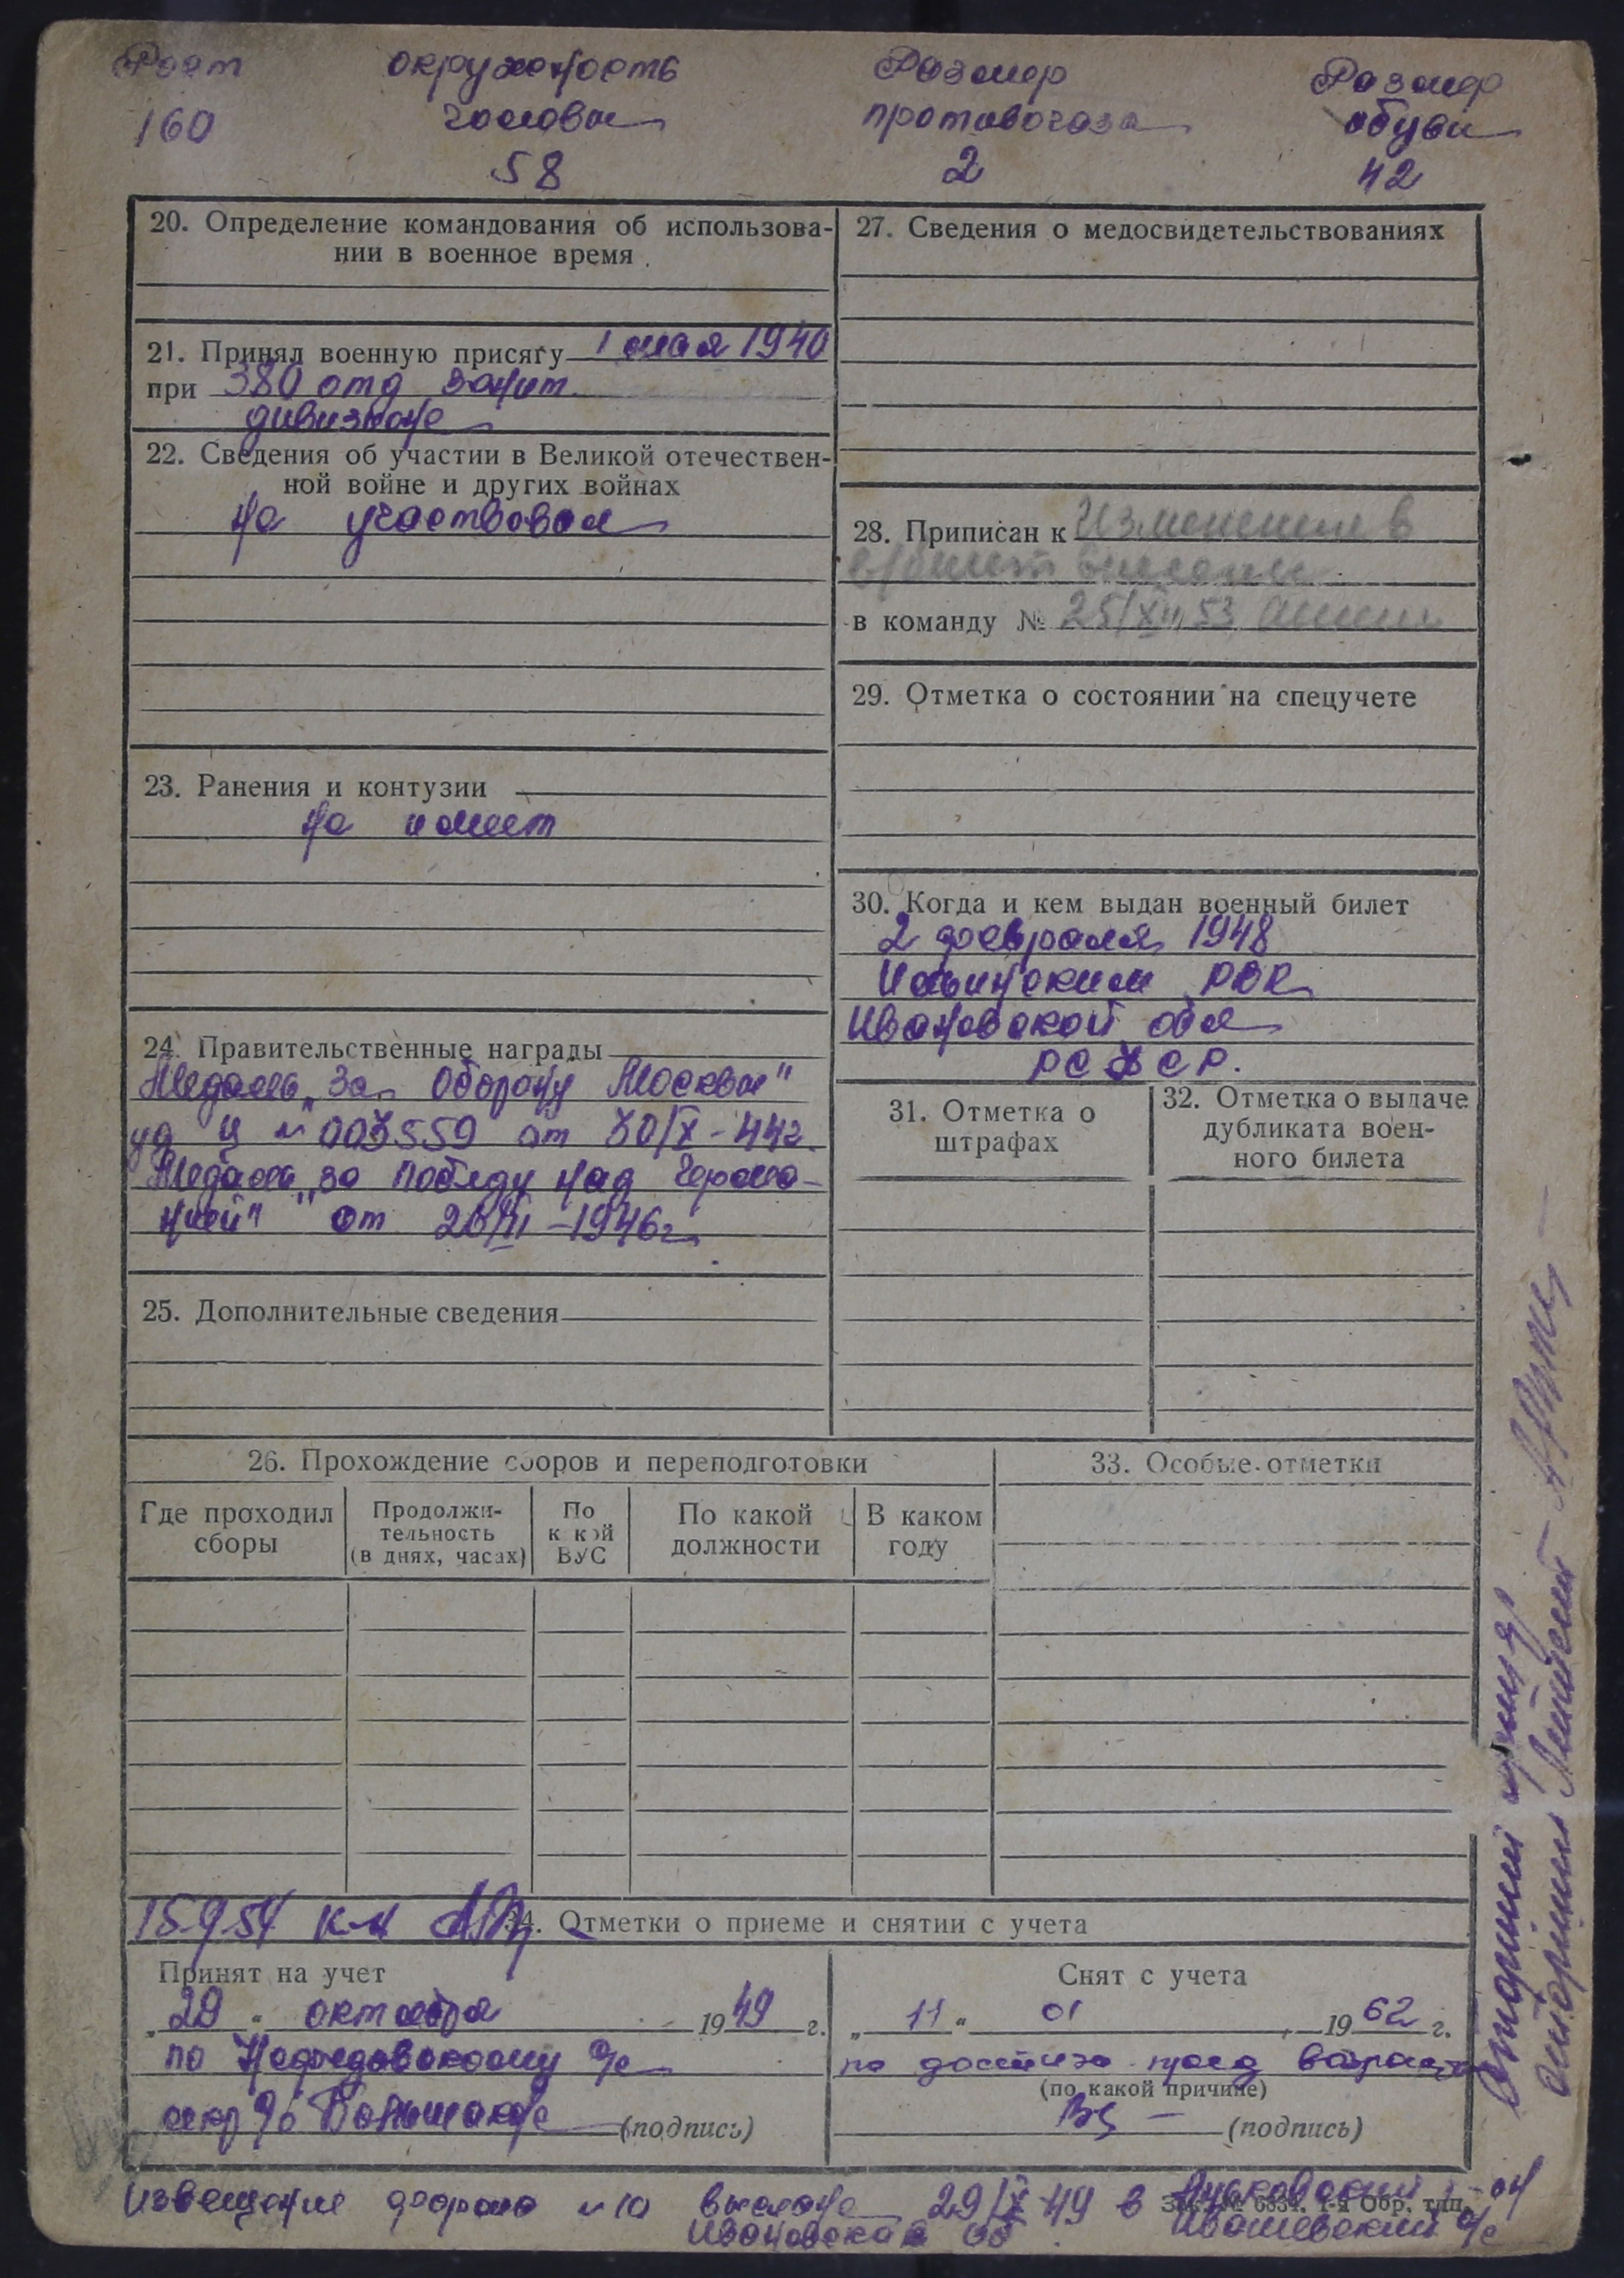 Рост окружность Размер Размер
160 головы противогаза обуви
58 2 42
20. Определение командования об использова-
нии в военное время
21. Принял военную присягу 1 мая 1940
при 380 отд зенит
дивизионе
22. Сведения об участии в Великой отечествен-
ной войне и других войнах
не участвовал
23. Ранения и контузии
не имеет
24. Правительственные награды
Медаль „За Оборону Москвы"
уд Ц № 003559 от 30/X-44г
Медаль „за победу над Герма-
нией" от
-1946г
25. Дополнительные сведения
27. Сведения о медосвидетельствованиях
28. Приписан к Изменения в
в/билет внесены
в команду № 25/XII 53
29. Отметка о состоянии на спецучете
30. Когда и кем выдан военный билет
2 февраля 1948
Ильинским РВК
Ивановской обл
РСФСР.
31. Отметка о
штрафах
32. Отметка о выдаче
дубликата воен-
ного билета
26. Прохождение сборов и переподготовки
Где проходил
сборы
Продолжи-
тельность
(в днях, часах)
По
к кой
ВУС
По какой
должности
В каком
году
33. Особые отметки
15.9.54
34. Отметки о приеме и снятии с учета
Принят на учет
„29" октября 1949 г.
по
(подпись)
Снят с учета
„11" 01 1962 г.
по достиж. пред возраста
(по какой причине)
(подпись)
Извещение форма №10 выслано 29/X 49 в
Ивановской об
Зак. № 6834. 1-я Обр. тип.